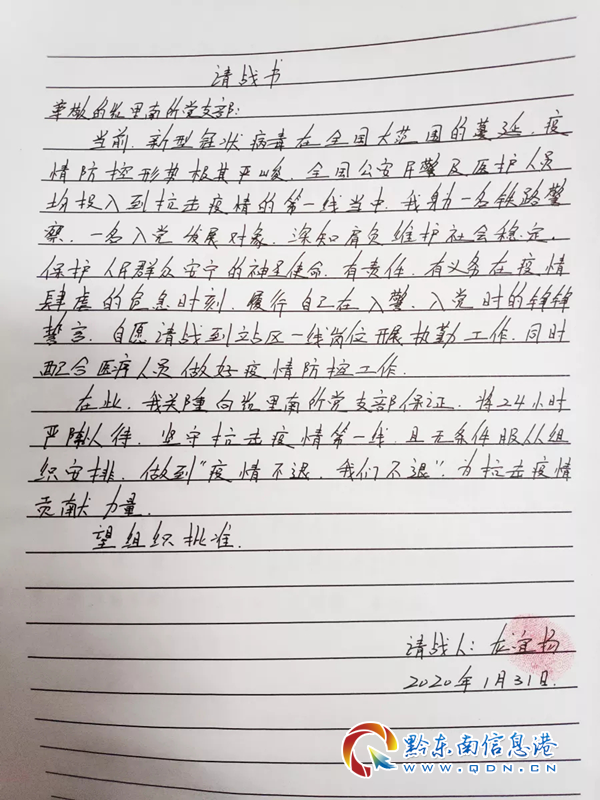 请战书
尊敬的凯里南所党支部:
当前,新型冠状病毒在全国大范围的蔓延,疫
情防控形势极其严峻,全国公安民警及医护人员
均投入到抗击疫情的第一线当中,我身为一名铁路警
察,一名入党发展对象,深知肩负维护社会稳定,
保护人民群众安宁的神圣使命,有责任,有义务在疫情
肆虐的危急时刻,履行自己在入警、入党时的铮铮
誓言,自愿请战到站区一线岗位开展执勤工作,同时
配合医疗人员做好疫情防控工作.
在此,我关隆向凯里南所党支部保证,将24小时
严阵以待,坚守抗击疫情第一线,且无条件服从组
织安排,做到"疫情不退,我们不退",为抗击疫情
贡献力量.
望组织批准.
请战人:龙宣扬
2020年1月31日.
黔东南信息港
WWW.QDN.CN